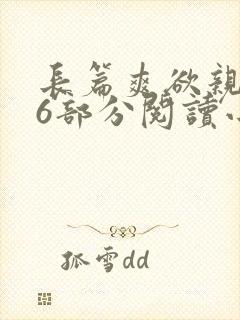 長篇爽欲親
6部分閱讀小
孤雪dd